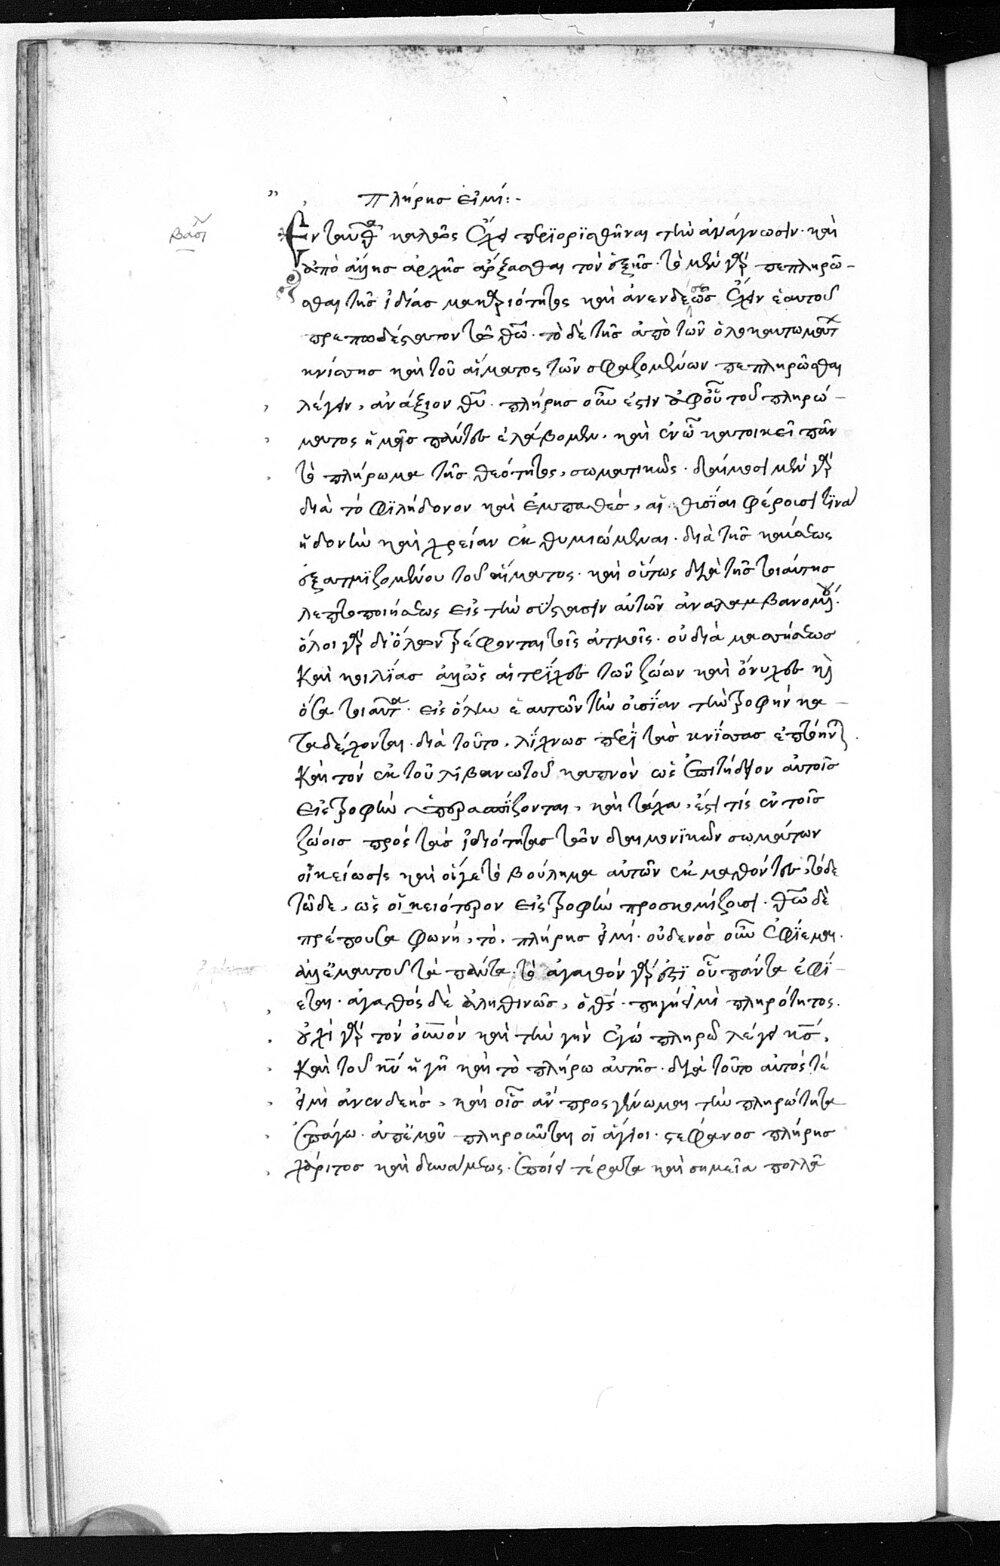 πλήρης εἰμί:-
βασι
Ἐνταῦθα καλῶς ἔχει περιορισθῆναι τὴν ἀνάγνωσιν· καὶ
ἀπὸ ἄλλης ἀρχῆς ἄρξασθαι τὸν ἑξῆς· τὸ μὲν γὰρ πεπληρῶ-
σθαι τῆς ἰδίας μακαριότητος καὶ ἀνενδεῶς ἔχειν ἑαυτοῦ
πρεπωδέστατον τῶ θεῶ· τὸ δὲ τῆς ἀπὸ τῶν ὁλοκαυτωμάτων
κνίσσης καὶ τοῦ αἵματος τῶν σφαζομένων πεπληρῶσθαι
λέγειν, ἀνάξιον θεοῦ· πλήρης οὖν ἐστὶν ἀφ' οὗ τοῦ πληρώ-
ματος ἡμεῖς πάντες ἐλάβομεν· καὶ ἐν ὧ κατοικεῖ πᾶν
τὸ πλήρωμα τῆς θεότητος, σωματικῶς· δαίμοσι μὲν γὰρ
διὰ τὸ φιλήδονον καὶ ἐμπαθὲς, αἱ θυσίαι φέρουσι τινα
ἡδονὴν καὶ χρείαν ἐκθυμιώμεναι· διὰ τῆς καύσεως
ἐξατμιζομένου τοῦ αἵματος· καὶ οὕτως διὰ τῆς τοιαύτης
λεπτοποιήσεως εἰς τὴν σύστασιν αὐτῶν ἀναλαμβανομένου·
ὅλοι γὰρ δι' ὅλων τρέφονται τοῖς ἀτμοῖς· οὐ διὰ μασήσεως
καὶ κοιλίας ἀλλ' ὡς αἱ τρίχες τῶν ζώων καὶ ὄνυχες καὶ
ὅσα τοιαῦτα· εἰς ὅλην ἑαυτῶν τὴν οὐσίαν τὴν τροφὴν κα-
ταδέχονται· διὰ τοῦτο, λίχνως περὶ τὰς κνίσσας ἐπτόηνται
καὶ τὸν ἐκ τοῦ λιβανωτοῦ καπνὸν ὡς ἐπιτήδειον αὐτοῖς
εἰς τροφὴν, καὶ τάχα, ἐστί τις ἐν τοῖς
ζώοις πρὸς τὰς ἰδιότητας τῶν δαιμονικῶν σωμάτων
οἰκείωσις καὶ οἵγε τὸ βούλημα αὐτῶν ἐκμαθόντες, τόδε
τῶδε, ὡς οἰκειότερον εἰς τροφὴν προσκομίζουσι· θεῶ δὲ
πρέπουσα φωνὴ, τὸ, πλήρης εἰμί· οὐδενὸς οὖν ἐφίεμαι·
ἀλλ' ἐμαυτοῦ τὰ πάντα· τὸ ἀγαθὸν γάρ ἐστι οὗ πάντα ἐφί-
εται· ἀγαθὸς δὲ ἀληθινῶς, ὁ θεός· πηγή εἰμι πληρότητος·
οὐχὶ γὰρ τὸν οὐρανὸν καὶ τὴν γῆν ἐγὼ πληρῶ λέγει κύριος,
καὶ τοῦ κυρίου ἡ γῆ καὶ τὸ πλήρωμα αὐτῆς· διὰ τοῦτο αὐτός τέ
εἰμι ἀνενδεὴς, καὶ οἷς ἂν προσγένωμαι τὴν πληρότητα
ἐπάγω· ἀπ' ἐμοῦ πληροῦνται οἱ ἅγιοι· στέφανος πλήρης
χάριτος καὶ δυνάμεως· ἐποίει τέρατα καὶ σημεῖα πολλὰ